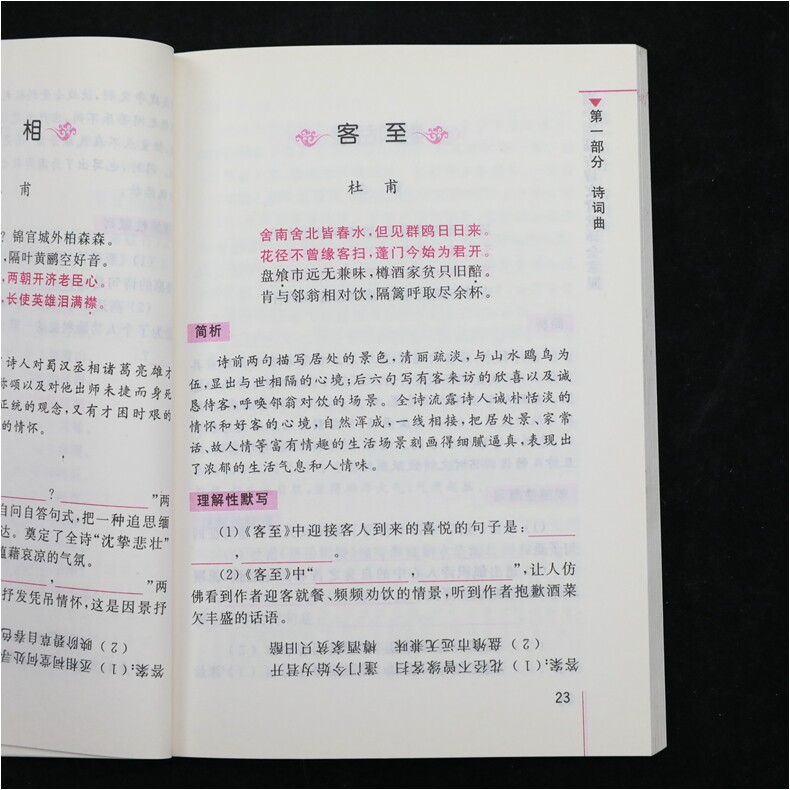 相
甫
？锦官城外柏森森。
，隔叶黄鹂空好音。
，两朝开济老臣心。
，长使英雄泪满襟。
诗人对蜀汉丞相诸葛亮雄才
称颂以及对他出师未捷而身死
正统的观念，又有才困时艰的
的情怀。
？”两
自问自答句式，把一种追思缅
达。奠定了全诗“沈挚悲壮”
蕴藉哀凉的气氛。
，”两
抒发凭吊情怀，这是因景抒
（2）映阶碧草自春色
答案：（1）丞相祠堂何处寻
客至
杜甫
舍南舍北皆春水，但见群鸥日日来。
花径不曾缘客扫，蓬门今始为君开。
盘飧市远无兼味，樽酒家贫只旧醅。
肯与邻翁相对饮，隔篱呼取尽余杯。
简析
诗前两句描写居处的景色，清丽疏淡，与山水鸥鸟为
伍，显出与世相隔的心境；后六句写有客来访的欣喜以及诚
恳待客，呼唤邻翁对饮的场景。全诗流露诗人诚朴恬淡的
情怀和好客的心境，自然浑成，一线相接，把居处景、家常
话、故人情等富有情趣的生活场景刻画得细腻逼真，表现出
了浓郁的生活气息和人情味。
理解性默写
（1）《客至》中迎接客人到来的喜悦的句子是：
，。
（2）《客至》中“，”，让人仿
佛看到作者迎客就餐、频频劝饮的情景，听到作者抱歉酒菜
欠丰盛的话语。
答案：（1）花径不曾缘客扫 蓬门今始为君开
（2）盘飧市远无兼味 樽酒家贫只旧醅
23
第一部分 诗词曲